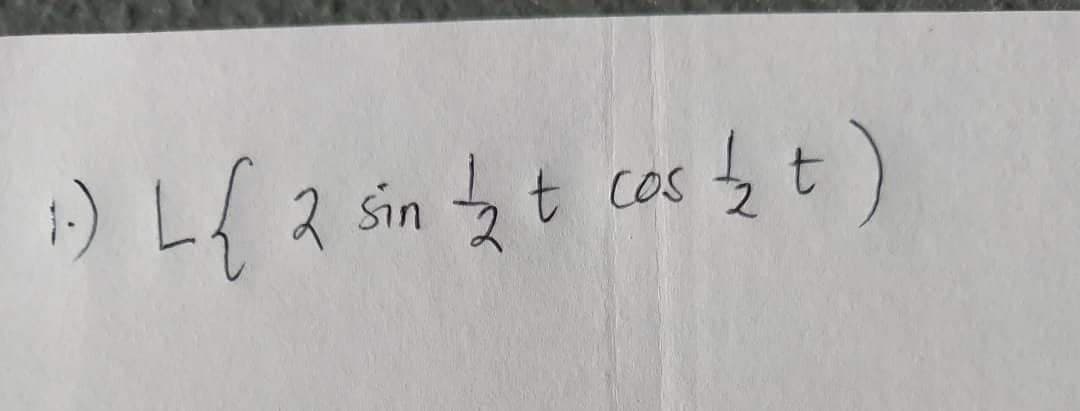 1.) L{ 2 sin 1/2 t cos 1/2 t )